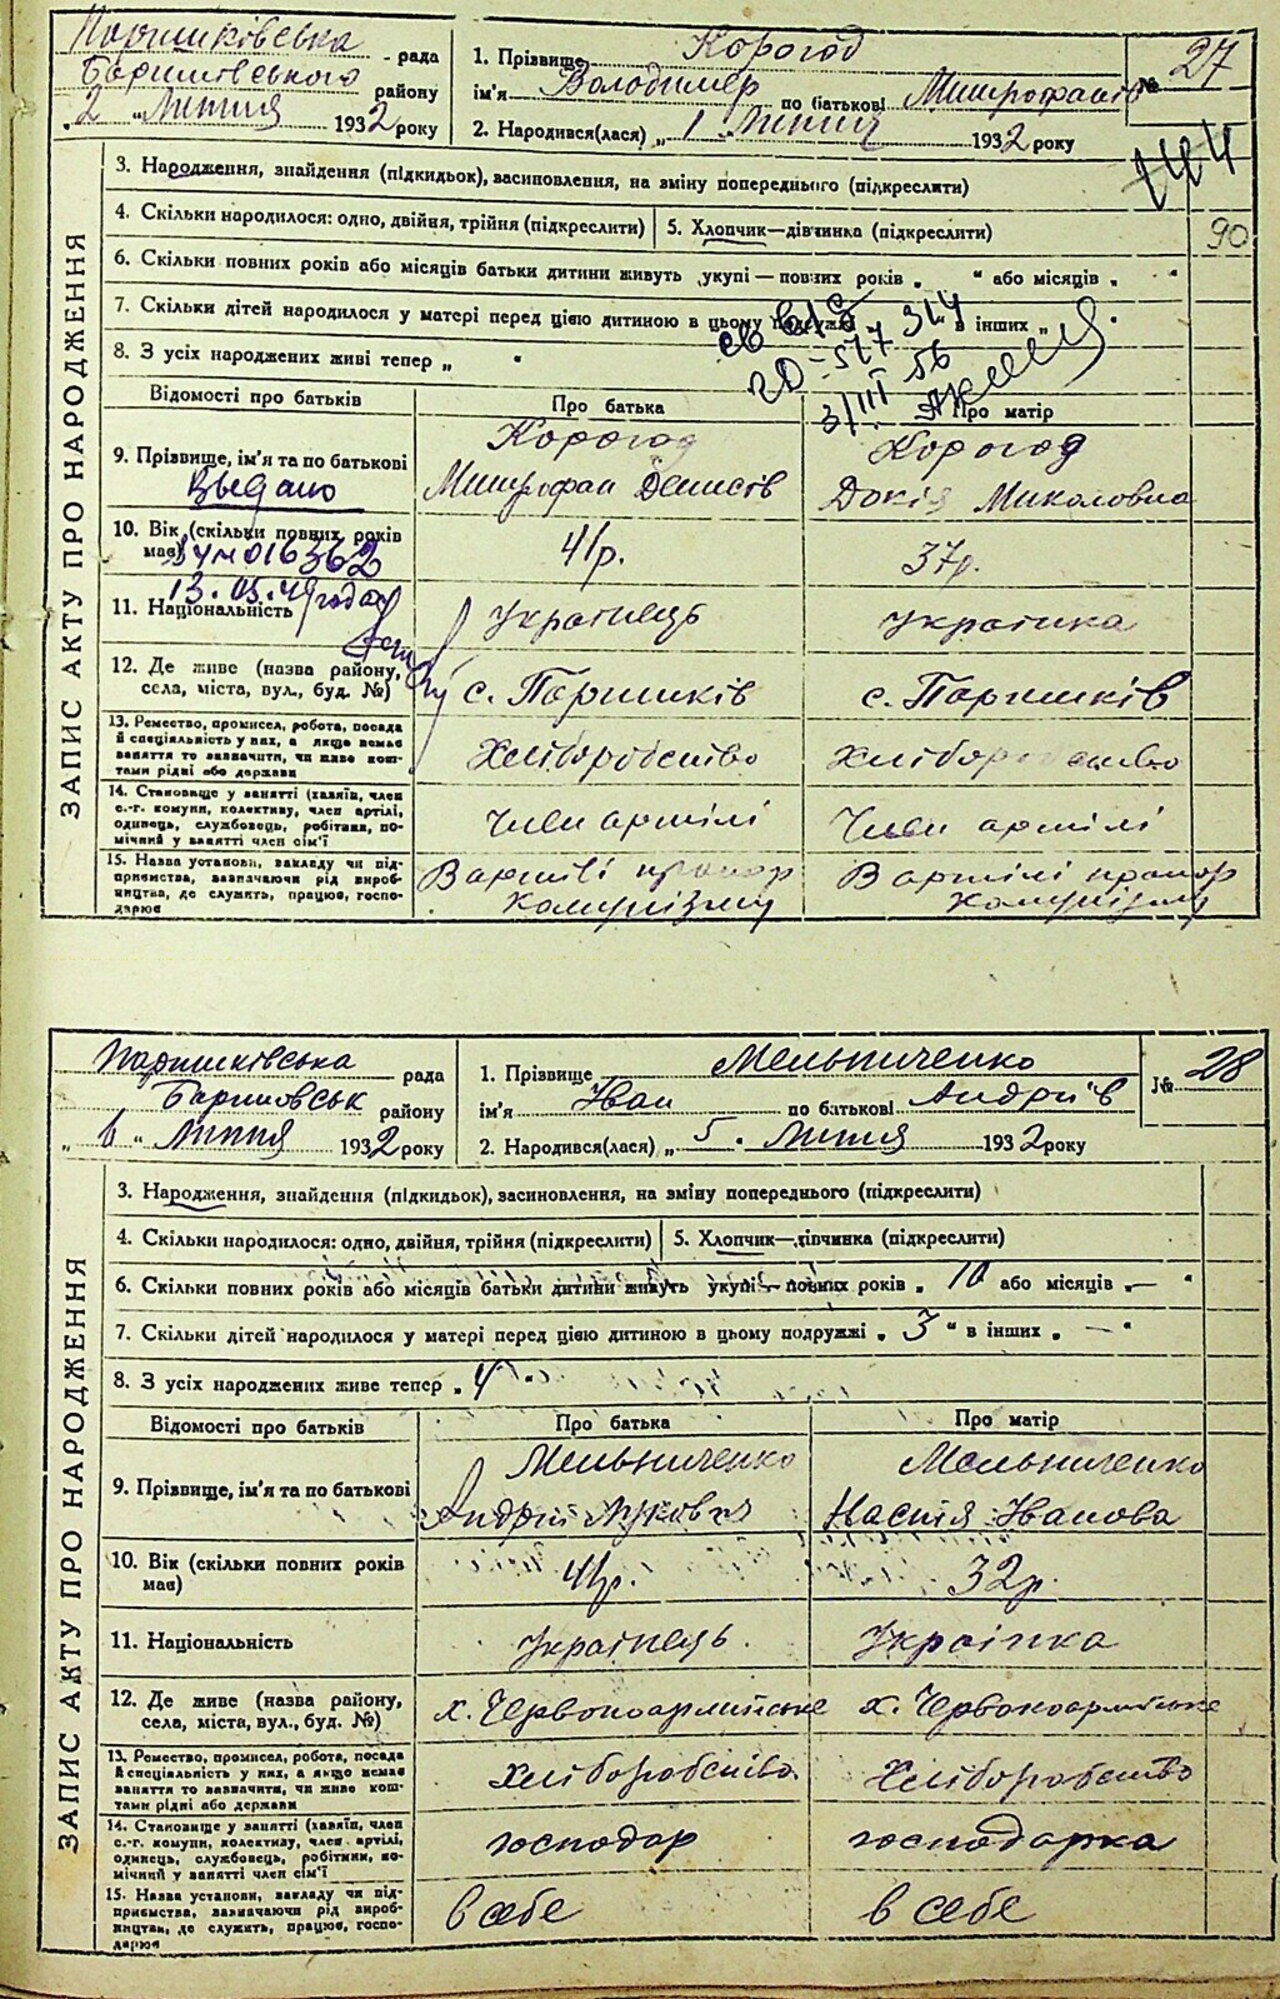 Паришківська рада
Баришівського району
„ 2 " Липня 1932 року
1. Прізвище Корогод
ім'я Володимер по батькові Митрофанів
2. Народився(лася) „ 1 " Липня 1932 року
№ 27
ЗАПИС АКТУ ПРО НАРОДЖЕННЯ
3. Народження, знайдення (підкидьок), засиновлення, на зміну попереднього (підкреслити)
4. Скільки народилося: одно, двійня, трійня (підкреслити)
5. Хлопчик—дівчинка (підкреслити)
90
6. Скільки повних років або місяців батьки дитини живуть укупі — повних років „ " або місяців „ "
7. Скільки дітей народилося у матері перед цією дитиною в цьому подружжі „ " в інших „ "
8. З усіх народжених живі тепер „ "
Відомості про батьків
Про батька
Про матір
9. Прізвище, ім'я та по батькові
Корогод
Митрофан Денисів
Корогод
Докія Миколовна
10. Вік (скільки повних років має)
41р.
37р.
016362
13.05.49 года
11. Національність
Українець
Українка
12. Де живе (назва району,
села, міста, вул., буд. №)
с. Паришків
с. Паришків
13. Ремество, промисел, робота, посада
й спеціяльність у них, а якщо немає
заняття то зазначити, чи живе кош-
тами рідні або держави
Хліборобство
Хліборобство
14. Становище у занятті (хазяїн, член
с.-г. комуни, колективу, член артілі,
одинець, службовець, робітник, по-
мічний у занятті член сім'ї
Член артілі
Член артілі
15. Назва установи, закладу чи під-
приємства, зазначаючи рід вироб-
ництва, де служить, працює, госпо-
дарює
В артілі прапор
комунізму
В артілі прапор
комунізму
Паришківська рада
Баришовськ району
„ 6 " Липня 1932 року
1. Прізвище Мельниченко
ім'я Іван по батькові Андріїв
2. Народився(лася) „ 5 . Липня 1932 року
№ 28
ЗАПИС АКТУ ПРО НАРОДЖЕННЯ
3. Народження, знайдення (підкидьок), засиновлення, на зміну попереднього (підкреслити)
4. Скільки народилося: одно, двійня, трійня (підкреслити)
5. Хлопчик—дівчинка (підкреслити)
6. Скільки повних років або місяців батьки дитини живуть укупі — повних років „ 10 або місяців „ — "
7. Скільки дітей народилося у матері перед цією дитиною в цьому подружжі „ 3 " в інших „ — "
8. З усіх народжених живе тепер „ 4 "
Відомості про батьків
Про батька
Про матір
9. Прізвище, ім'я та по батькові
Мельниченко
Андрій Лукович
Мельниченко
Настя Іванова
10. Вік (скільки повних років
має)
41р.
32р.
11. Національність
Українець.
Українка
12. Де живе (назва району,
села, міста, вул., буд. №)
х. Червоноармійське
х. Червоноармійське
13. Ремество, промисел, робота, посада
й спеціяльність у них, а якщо немає
заняття то зазначити, чи живе кош-
тами рідні або держави
Хліборобство.
Хліборобство
14. Становище у занятті (хазяїн, член
с.-г. комуни, колективу, член артілі,
одинець, службовець, робітник, по-
мічний у занятті член сім'ї
господар
господарка
15. Назва установи, закладу чи під-
приємства, зазначаючи рід вироб-
ництва, де служить, працює, госпо-
дарює
в себе
в себе